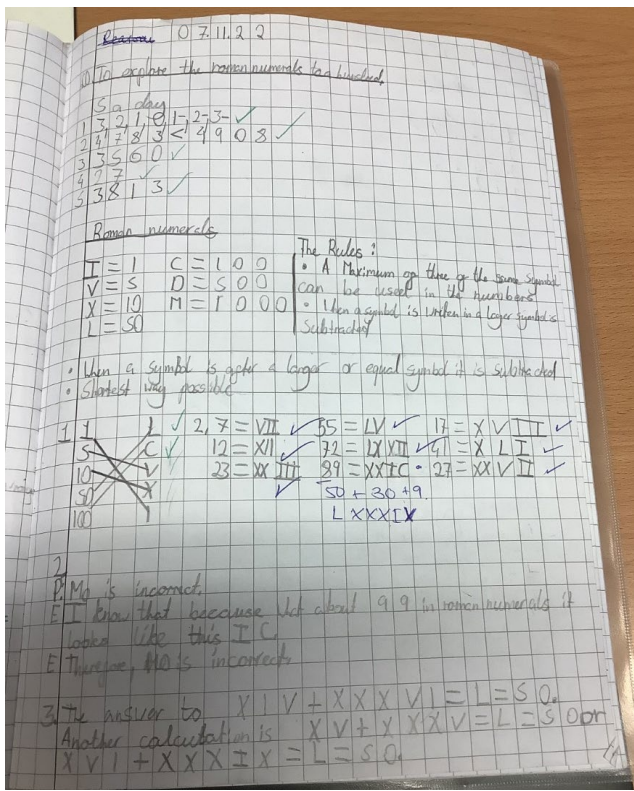 07.11.22
To explore the roman numerals to a hundred.
5 a day
1 3,2,1,0,1-,2-,3-
2 4783 < 4908
3 3560
4 27
5 3813
Roman numerals
I = 1 C = 100
V = 5 D = 500
X = 10 M = 1000
L = 50
The Rules:
• A Maximum of three of the same symbol
can be used in the numbers
• When a symbol is written in a larger symbol is
subtracted
• When a symbol is after a larger or equal symbol it is subtracted
• Shortest way possible
1 1 L 2, 7 = VII 55 = LV 17 = XVIII
5 C 12 = XII 72 = LXXII 41 = XLI
10 V 23 = XXIII 89 = XXIC 27 = XXVII
50 X 50 + 30 + 9
100 I L XXX IX
2
P Mo is incorrect.
E I know that because what about 99 in roman numerals it
looks like this IC.
E Therefore, Mo is incorrect.
3. The answer to XIV + XXXVI = L = 50.
Another calculation is XV + XXXV = L = 50 or
XVI + XXXIX = L = 50.